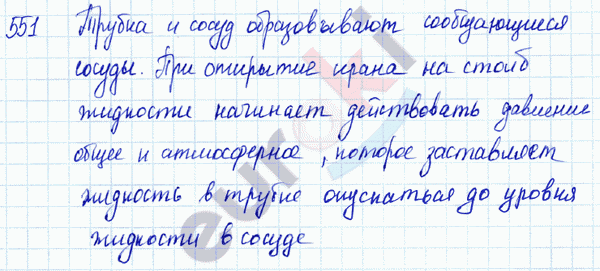 551 Трубка и сосуд образовывают сообщающиеся
сосуды. При открытие крана на столб
жидкости начинает действовать давление
общее и атмосферное, которое заставляет
жидкость в трубке опускаться до уровня
жидкости в сосуде
euroki